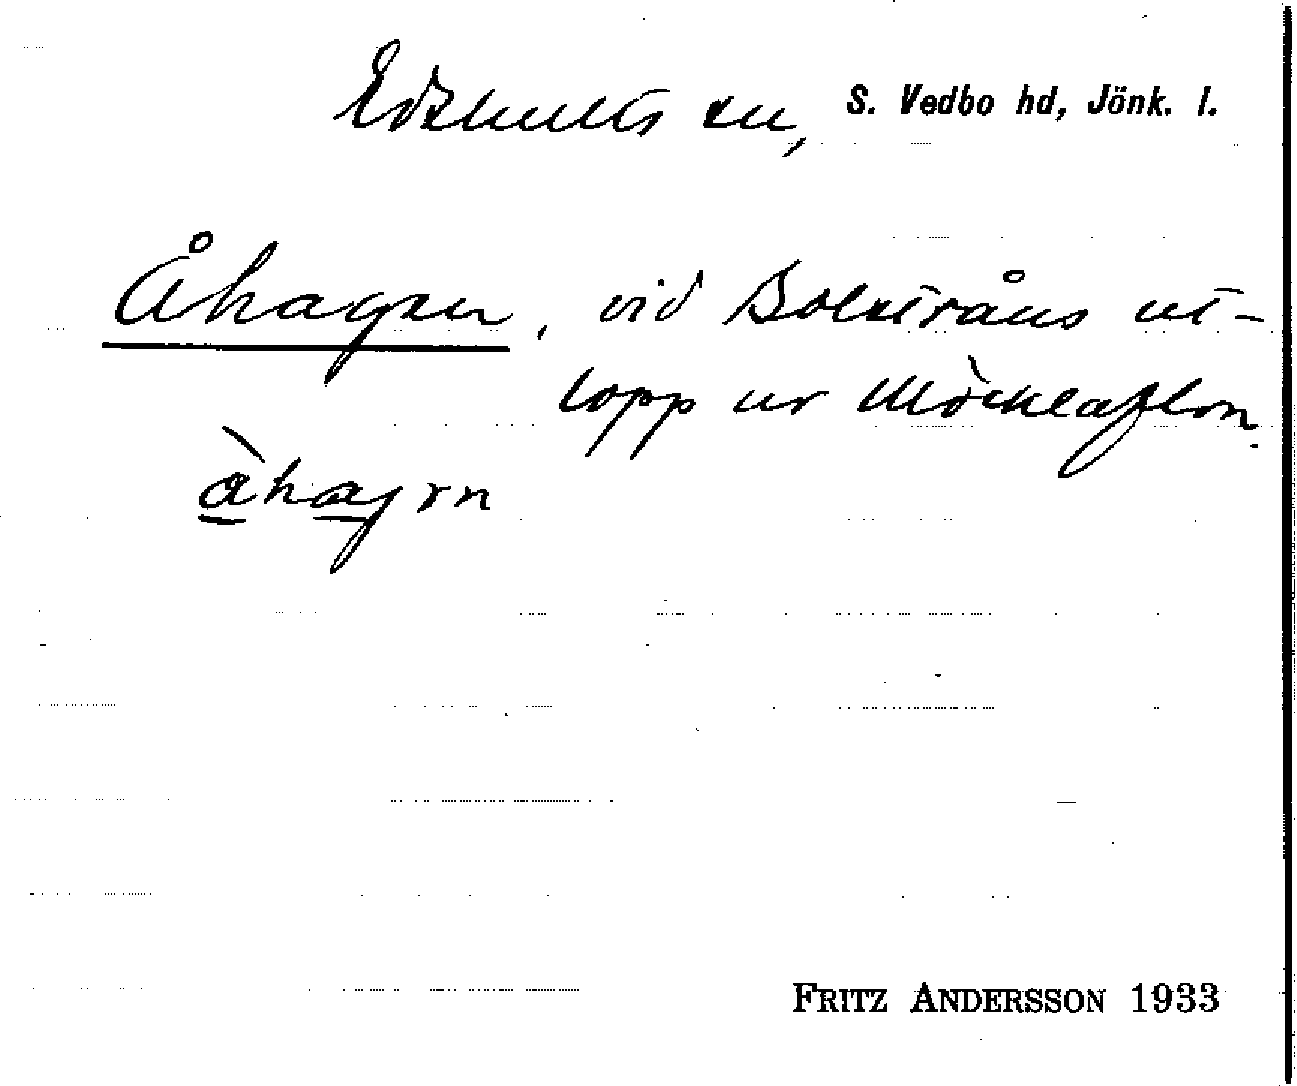 Edshults sn, S. Vedbo hd, Jönk. l.
Åhagen, vid Solstråns ut-
lopp ur Möcklaflon.
àhagrn
FRITZ ANDERSSON 1933